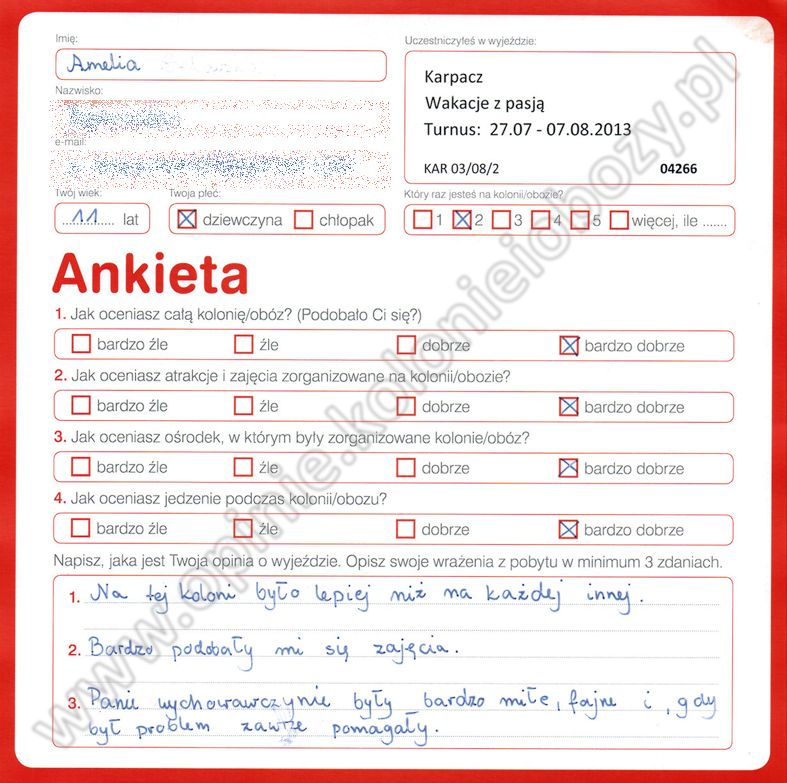 Imię:
Amelia
Nazwisko:
e-mail:
Twój wiek:
11 lat
Twoja płeć:
dziewczyna chłopak
Uczestniczyłeś w wyjeździe:
Karpacz
Wakacje z pasją
Turnus: 27.07 - 07.08.2013
KAR 03/08/2 04266
Który raz jesteś na kolonii/obozie?
1 2 3 4 5 więcej, ile .......
Ankieta
1. Jak oceniasz całą kolonię/obóz? (Podobało Ci się?)
bardzo źle źle dobrze bardzo dobrze
2. Jak oceniasz atrakcje i zajęcia zorganizowane na kolonii/obozie?
bardzo źle źle dobrze bardzo dobrze
3. Jak oceniasz ośrodek, w którym były zorganizowane kolonie/obóz?
bardzo źle źle dobrze bardzo dobrze
4. Jak oceniasz jedzenie podczas kolonii/obozu?
bardzo źle źle dobrze bardzo dobrze
Napisz, jaka jest Twoja opinia o wyjeździe. Opisz swoje wrażenia z pobytu w minimum 3 zdaniach.
1. Na tej koloni było lepiej niż na każdej innej.
2. Bardzo podobały mi się zajęcia.
3. Panie wychowawczynie były bardzo miłe, fajne i, gdy
był problem zawsze pomagały.
www.opinie.kolonieiobozy.pl